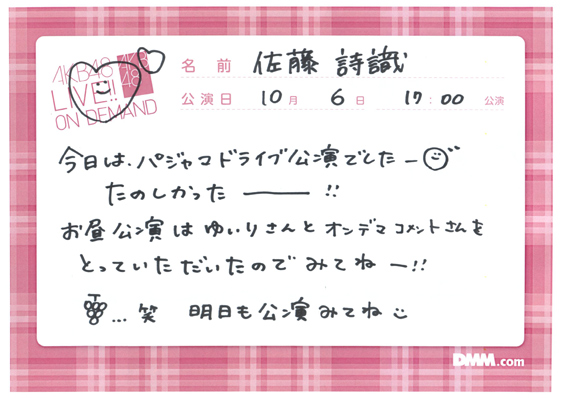 AKB48
LIVE!!
ON DEMAND
AKB48
名 前 佐藤 詩識
公演日 10月 6日 17:00 公演
今日は、パジャマドライブ公演でしたー
たのしかった ――― !!
お昼公演は ゆいりさんと オンデマコメントさんを
とっていただいたので みてねー!!
…笑 明日も公演みてね
DMM.com